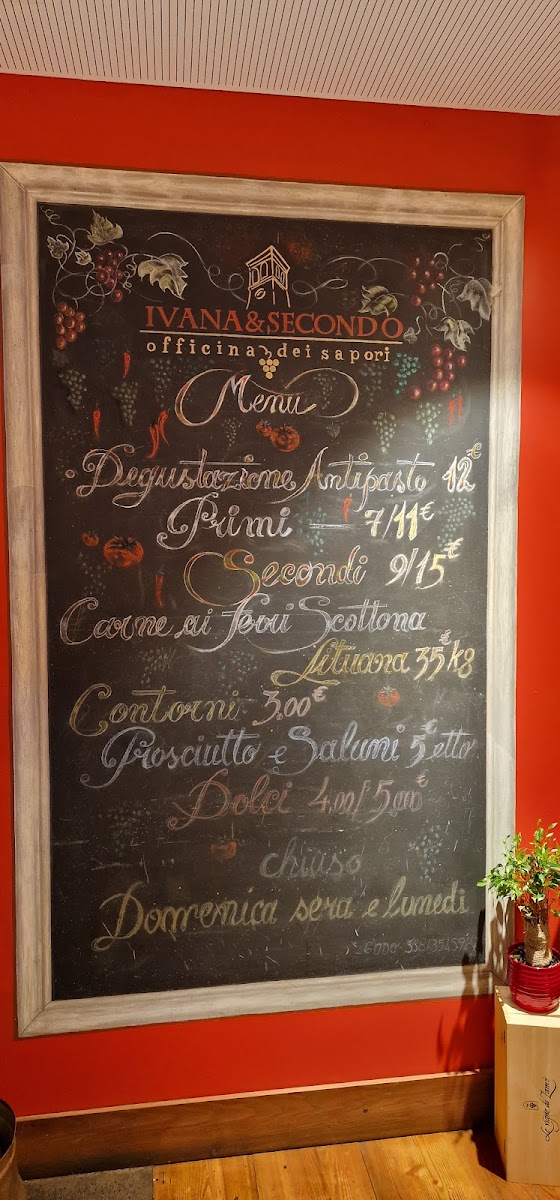 IVANA&SECONDO
officina dei sapori
Menu
Degustazione Antipasto 12€
Primi — 7/11€
Secondi 9/15€
Carne ai Ferri Scottona
Lituana 35€ kg
Contorni 3.00€
Prosciutto e Salumi 5€ etto
Dolci 4,00/5,00€
chiuso
Domenica sera e lunedi